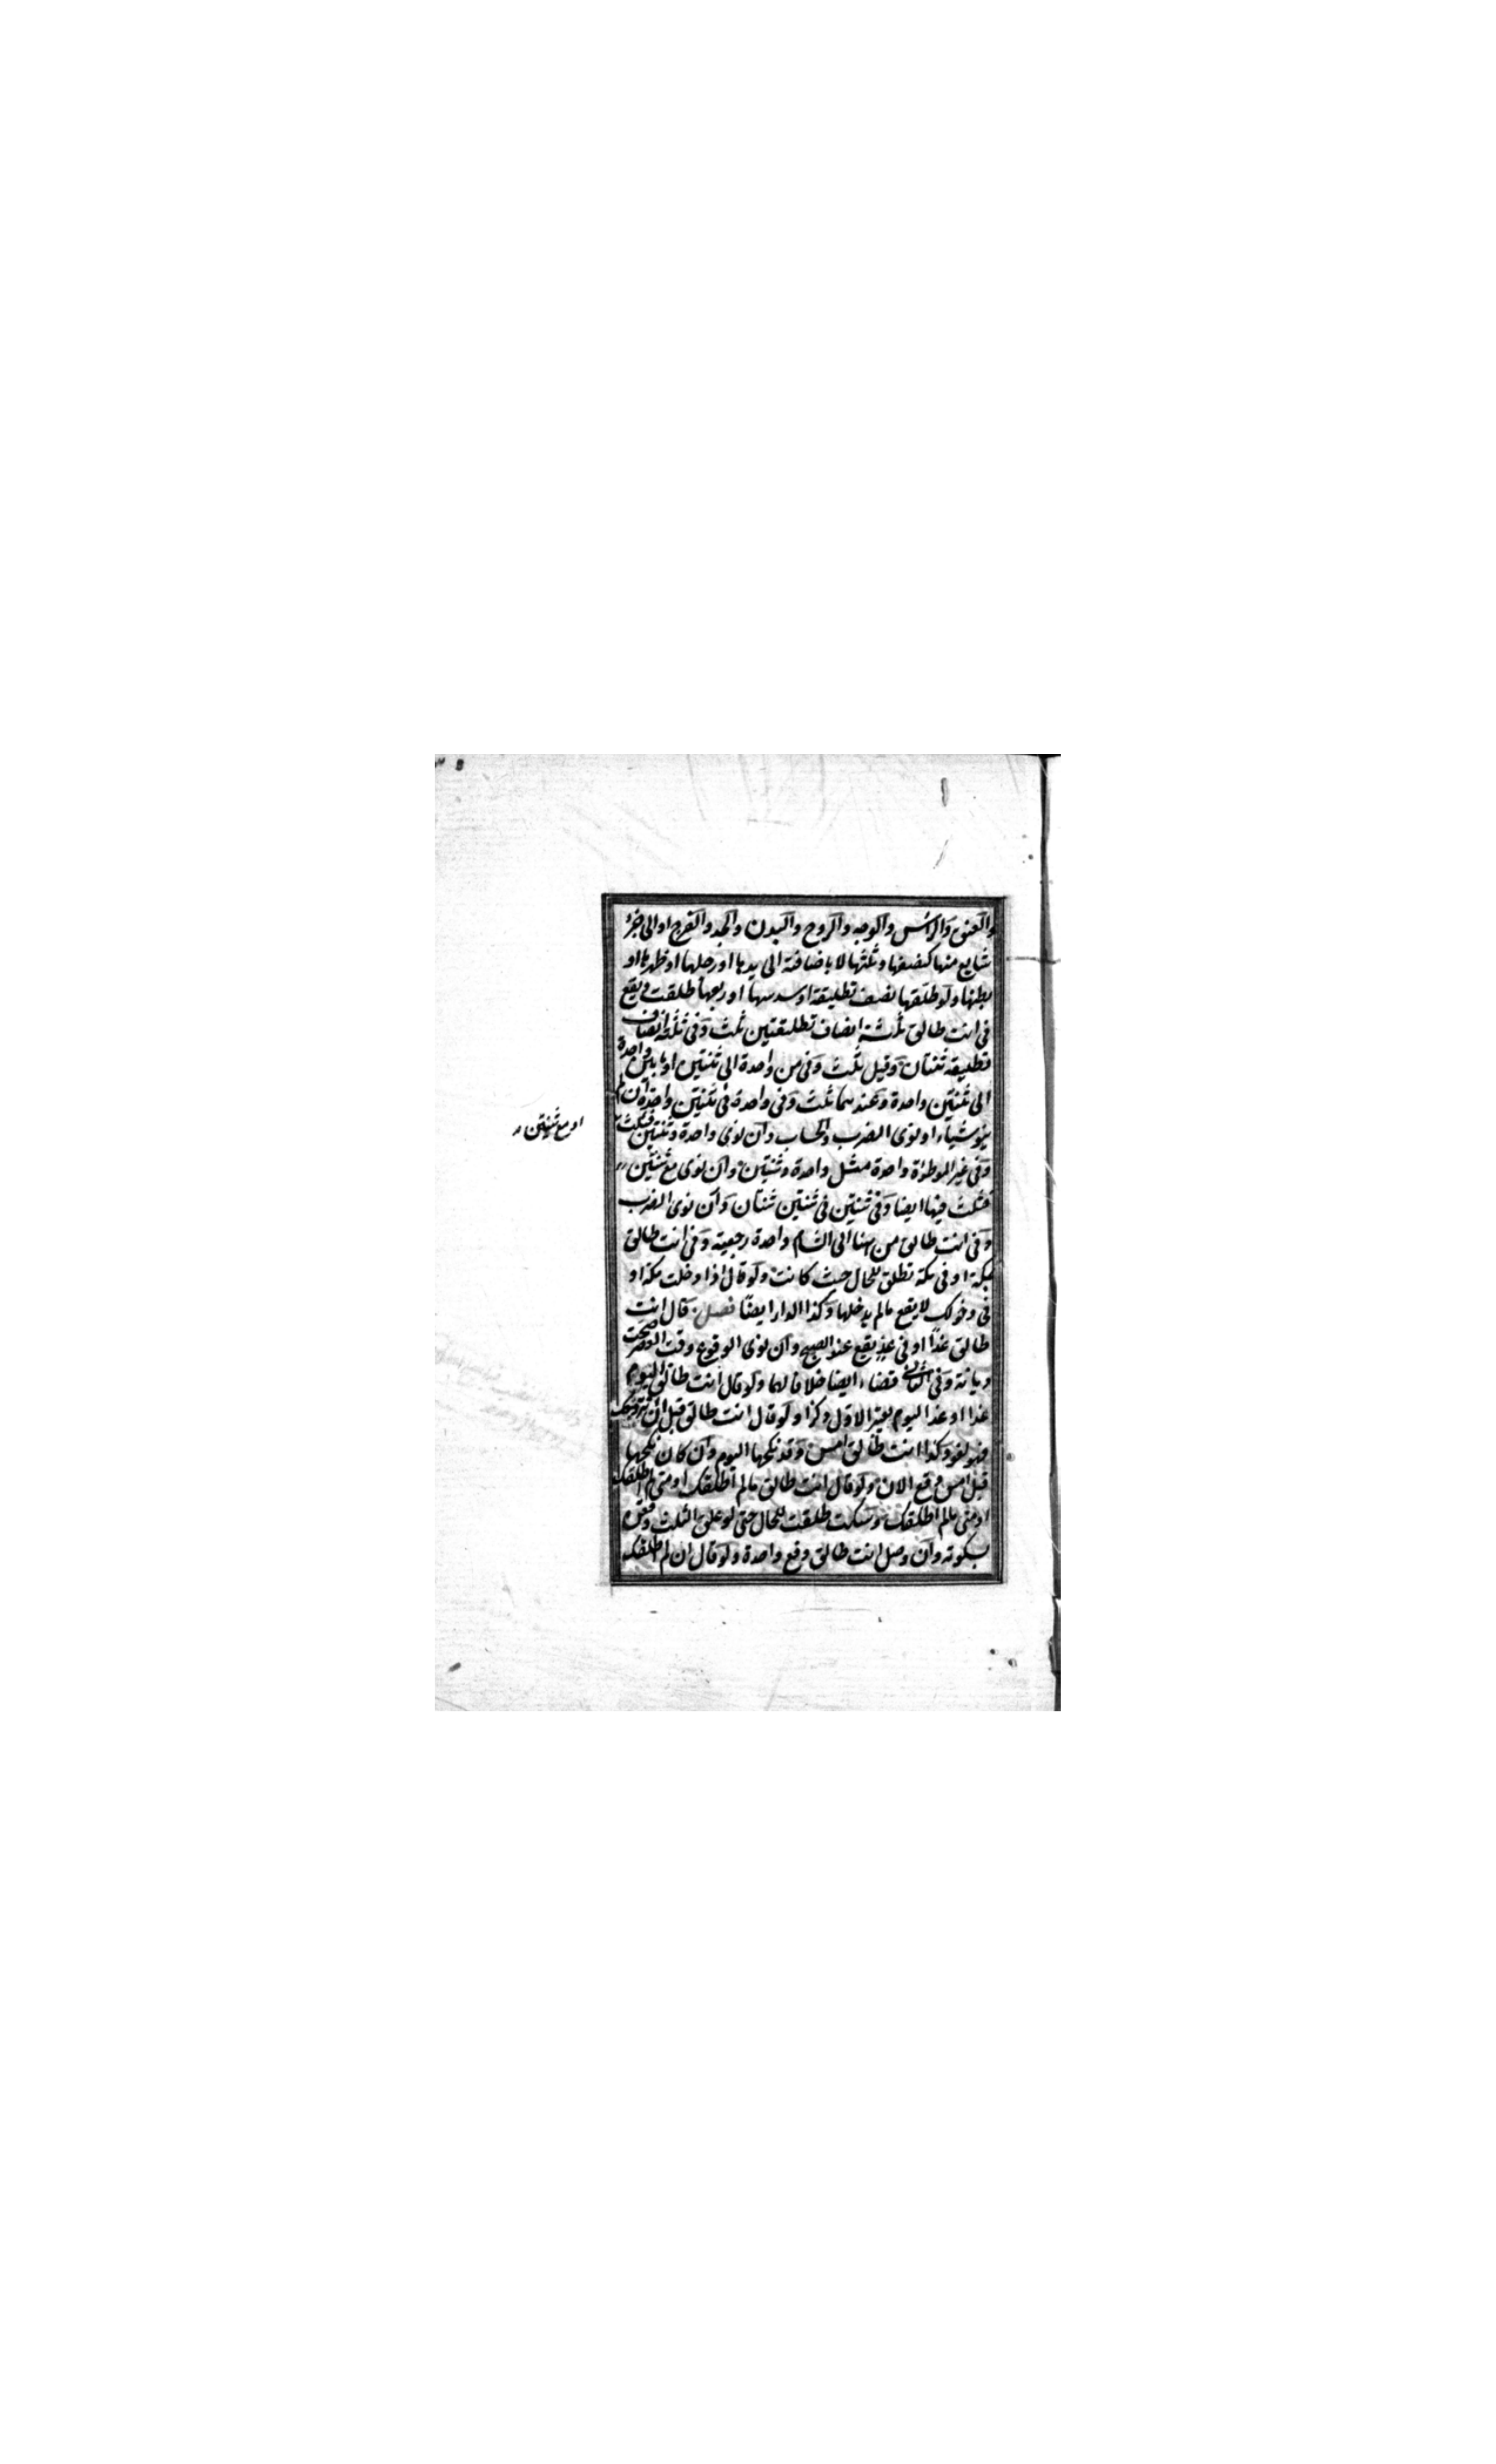 والعنق والرأس والوجه والروح والبدن والجسد والفرج او الى جزء
شايع منها كنصفها وثلثها لا باضافة الى يدها او رجلها او ظهرها او
بطنها ولو طلقها نصف تطليقة او سدسها او ربعها طلقت ويقع
فى انت طالق ثلثة انصاف تطليقتين ثلث وفى ثلثة انصاف
تطليقة ثنتان وقيل ثلث وفى من واحدة الى ثنتين او ما بين واحدة
الى ثنتين واحدة وعندهما ثلث وفى واحدة فى ثنتين واحدة ان لم
ينو شيئا او نوى الضرب والحساب وان نوى واحدة وثنتين فثلث
وفى غير الموطوءة واحدة مثل واحدة وثنتين وان نوى مع ثنتين
فثلث فيها ايضا وفى ثنتين فى ثنتين ثنتان وان نوى الضرب
وفى انت طالق من هنا الى الشام واحدة رجعية وفى انت طالق
بمكة او فى مكة تطلق للحال حيث كانت ولو قال اذا دخلت مكة او
فى دخولك لا يقع ما لم يدخلها وكذا الدار ايضا فصل قال انت
طالق غدا او فى غد يقع عند الصبح وان نوى الوقوع وقت العصر صحت
ديانة وفى الثانى قضاء ايضا خلافا لهما ولو قال انت طالق اليوم
غدا او غدا اليوم يعتبر الاول ذكرا ولو قال انت طالق قبل ان اتزوجك
فهو لغو وكذا انت طالق امس وقد نكحها اليوم وان كان نكحها
قبل امس وقع الان ولو قال انت طالق ما لم اطلقك او متى لم اطلقك
او متى ما لم اطلقك وسكت طلقت للحال حتى لو علق الثلث وقعن
بسكوته وان وصل انت طالق وقع واحدة ولو قال ان لم اطلقك
او مع ثنتين